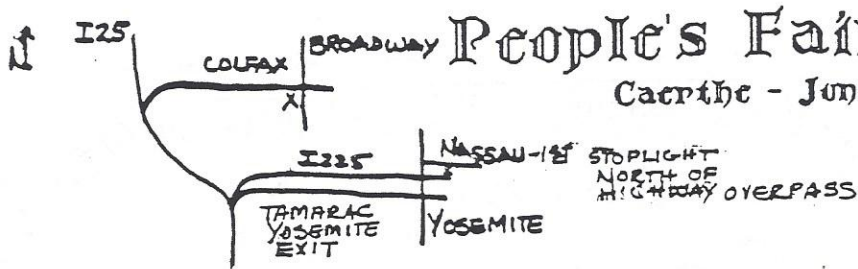 N
I25
COLFAX
BROADWAY
People's Fai
Caerthe - Jun
X
I225
NASSAU-1st STOPLIGHT
NORTH OF
HIGHWAY OVERPASS
TAMARAC
YOSEMITE
EXIT
YOSEMITE